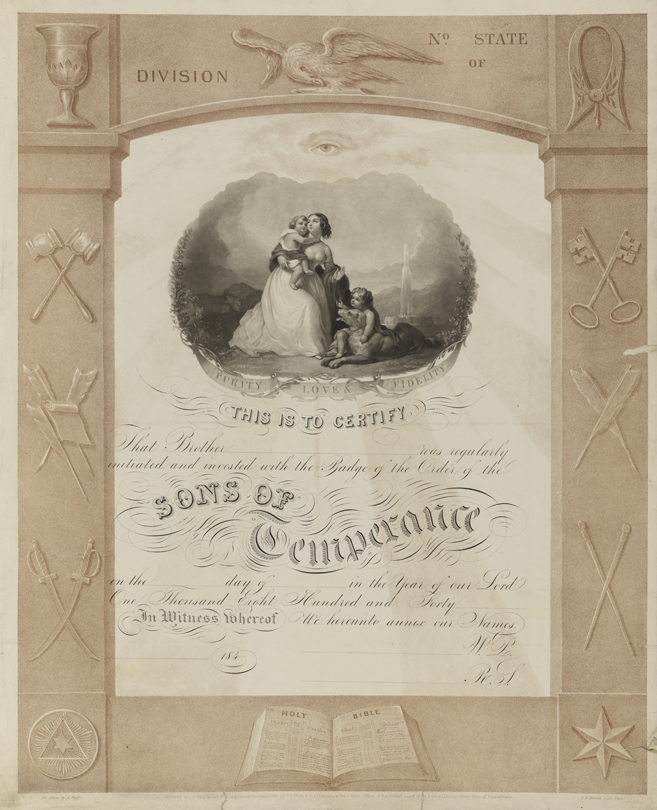 DIVISION
Nº STATE
OF
PURITY LOVE & FIDELITY
THIS IS TO CERTIFY
That Brother was regularly
initiated and invested with the Badge of the Order of the
SONS OF
Temperance
on the day of in the Year of our Lord
One Thousand Eight Hundred and Forty
In Witness whereof We hereunto annex our Names.
W.P.
184
R.S.
HOLY BIBLE